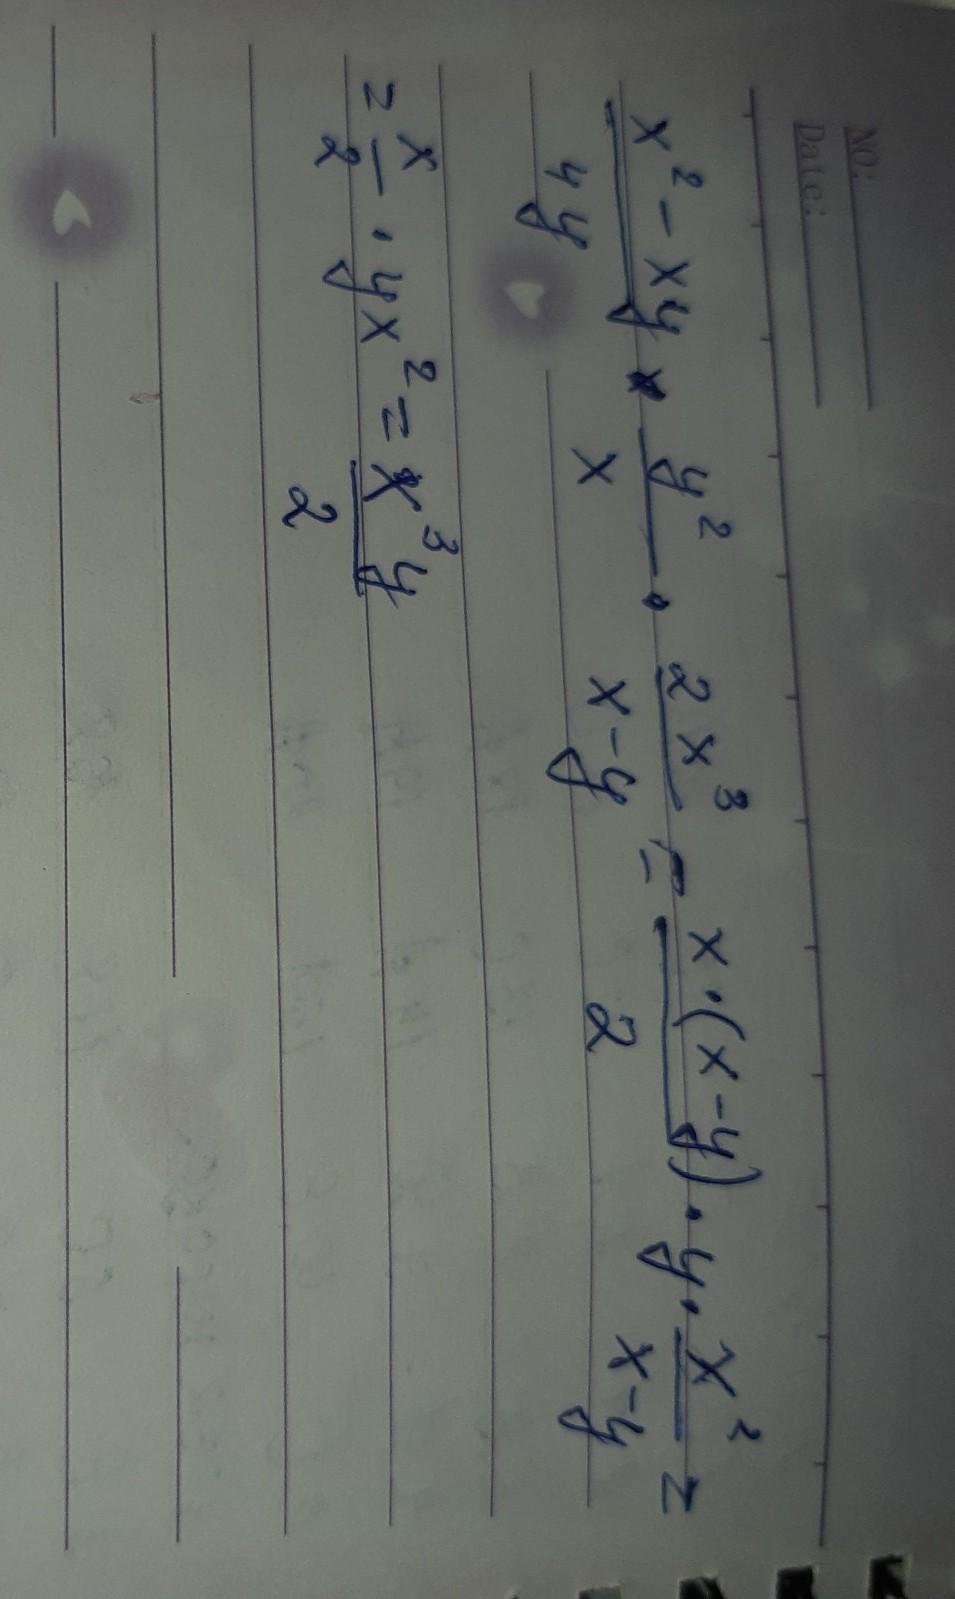 NO:
Date:
x² - xy / 4y · y² / x · 2x³ / x-y = x·(x-y) / 2 · y · x² / x-y =
= x / 2 · yx² = x³y / 2